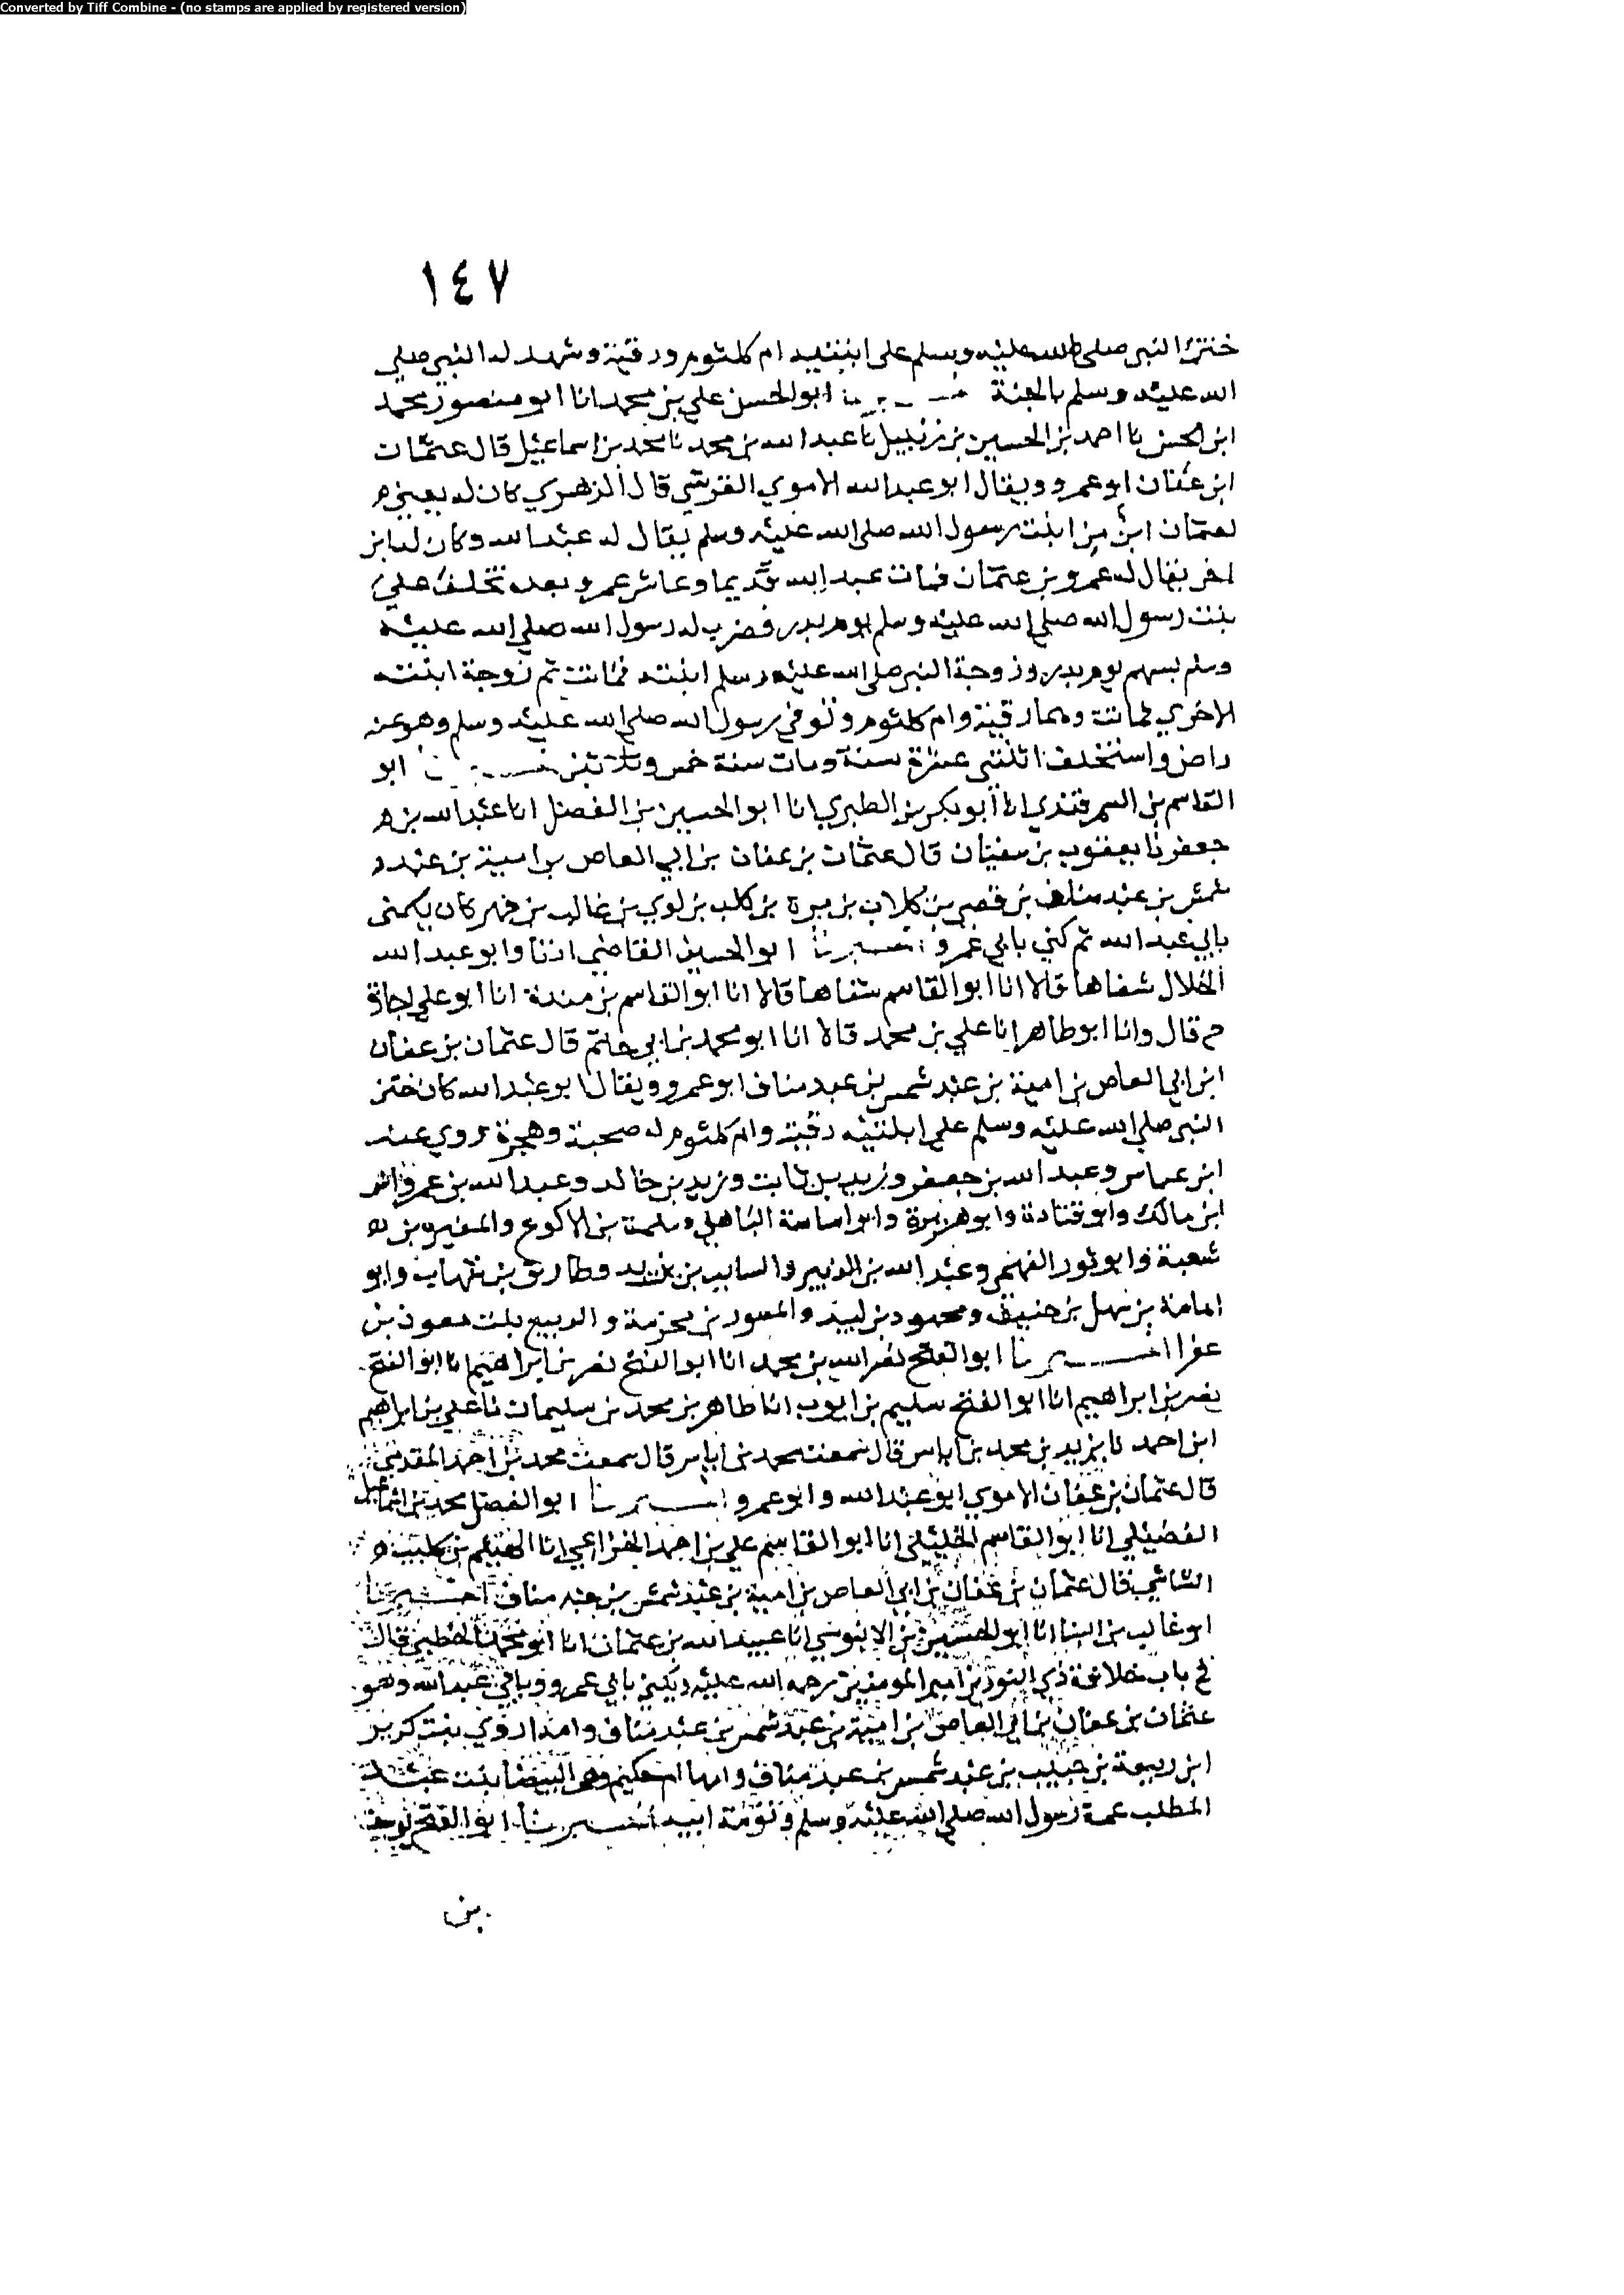 Converted by Tiff Combine - (no stamps are applied by registered version)
١٤٧
ختن النبي صلى الله عليه وسلم على ابنتيه ام كلثوم ورقية وشهد له النبي صلى
الله عليه وسلم بالجنة اخبرنا ابو الحسن علي بن محمد انا ابو منصور محمد
ابن الحسن نا احمد بن الحسين بن زنبيل نا عبد الله بن محمد نا محمد بن اسماعيل قال عثمان
ابن عفان ابو عمرو ويقال ابو عبد الله الاموي القرشي قال الزهري كان له يعني
لعثمان ابن من ابنت رسول الله صلى الله عليه وسلم يقال له عبد الله وكان له ابن
اخر يقال له عمرو بن عثمان فمات عبد الله قديما وعاش عمرو بعد تخلف على
بنت رسول الله صلى الله عليه وسلم يوم بدر فضرب له رسول الله صلى الله عليه
وسلم بسهم يوم بدر وزوجة النبي صلى الله عليه وسلم ابنته فماتت ثم زوجة ابنته
الاخرى فماتت وهما رقية وام كلثوم وتوفي رسول الله صلى الله عليه وسلم وهو عنه
راض واستخلف اثنتي عشرة سنة ومات سنة خمس وثلاثين اخبرنا ابو
القاسم بن السمرقندي انا ابو بكر بن الطبري انا ابو الحسين بن الفضل انا عبد الله بن
جعفر نا يعقوب بن سفيان قال عثمان بن عفان بن ابي العاص بن امية بن عبد
شمس بن عبد مناف بن قصي بن كلاب بن مرة بن كعب بن لوي بن غالب بن فهر كان يكنى
بابي عبد الله ثم كني بابي عمرو اخبرنا ابو الحسين القاضي اذنا وابو عبد الله
الخلال شفاها قالا انا ابو القاسم شفاها قالا انا ابو القاسم بن مندة انا ابو علي اجازة
ح قال وانا ابو طاهر انا علي بن محمد قالا انا ابو محمد بن ابي حاتم قال عثمان بن عفان
ابن ابي العاص بن امية بن عبد شمس بن عبد مناف ابو عمرو ويقال ابو عبد الله كان ختن
النبي صلى الله عليه وسلم على ابنتيه رقية وام كلثوم له صحبة وهجرة روى عنه
ابن عباس وعبد الله بن جعفر وزيد بن ثابت وزيد بن خالد وعبد الله بن عمر وانس
ابن مالك وابو قتادة وابو هريرة وابو امامة الباهلي وسلمة بن الاكوع والمغيرة بن
شعبة وابو ثور الفهمي وعبد الله بن الزبير والسايب بن يزيد وطارق بن شهاب وابو
امامة بن سهل بن حنيف ومحمود بن لبيد والمسور بن مخرمة والربيع بنت معوذ بن
عفرا اخبرنا ابو الفتح نصر الله بن محمد انا ابو الفتح نصر بن ابراهيم انا ابو الفتح
نصر بن ابراهيم انا ابو الفتح سليم بن ايوب انا طاهر بن محمد بن سليمان نا علي بن ابراهيم
ابن احمد نا يزيد بن محمد بن اياس قال سمعت محمد بن اياس قال سمعت محمد بن احمد المقدمي
قال عثمان بن عفان الاموي ابو عبد الله وابو عمرو اخبرنا ابو الفضل محمد بن اسماعيل
الفضيلي انا ابو القاسم الخليلي انا ابو القاسم علي بن احمد الخزاعي انا الهيثم بن كليب
الشاشي قال عثمان بن عفان بن ابي العاص بن امية بن عبد شمس بن عبد مناف اخبرنا
ابو غالب بن البنا انا ابو الحسين بن الابنوسي انا عبيد الله بن عثمان انا ابو محمد الخطبي قال
في باب خلافة ذي النورين امير المومنين رحمه الله عليه ويكنى بابي عمرو وبابي عبد الله وهو
عثمان بن عفان بن ابي العاص بن امية بن عبد شمس بن عبد مناف وامه اروى بنت كريز
ابن ربيعة بن حبيب بن عبد شمس بن عبد مناف وامها ام حكيم وهي البيضا بنت عبد
المطلب عمة رسول الله صلى الله عليه وسلم وتومة ابيه اخبرنا ابو الفتح يوسف
بن